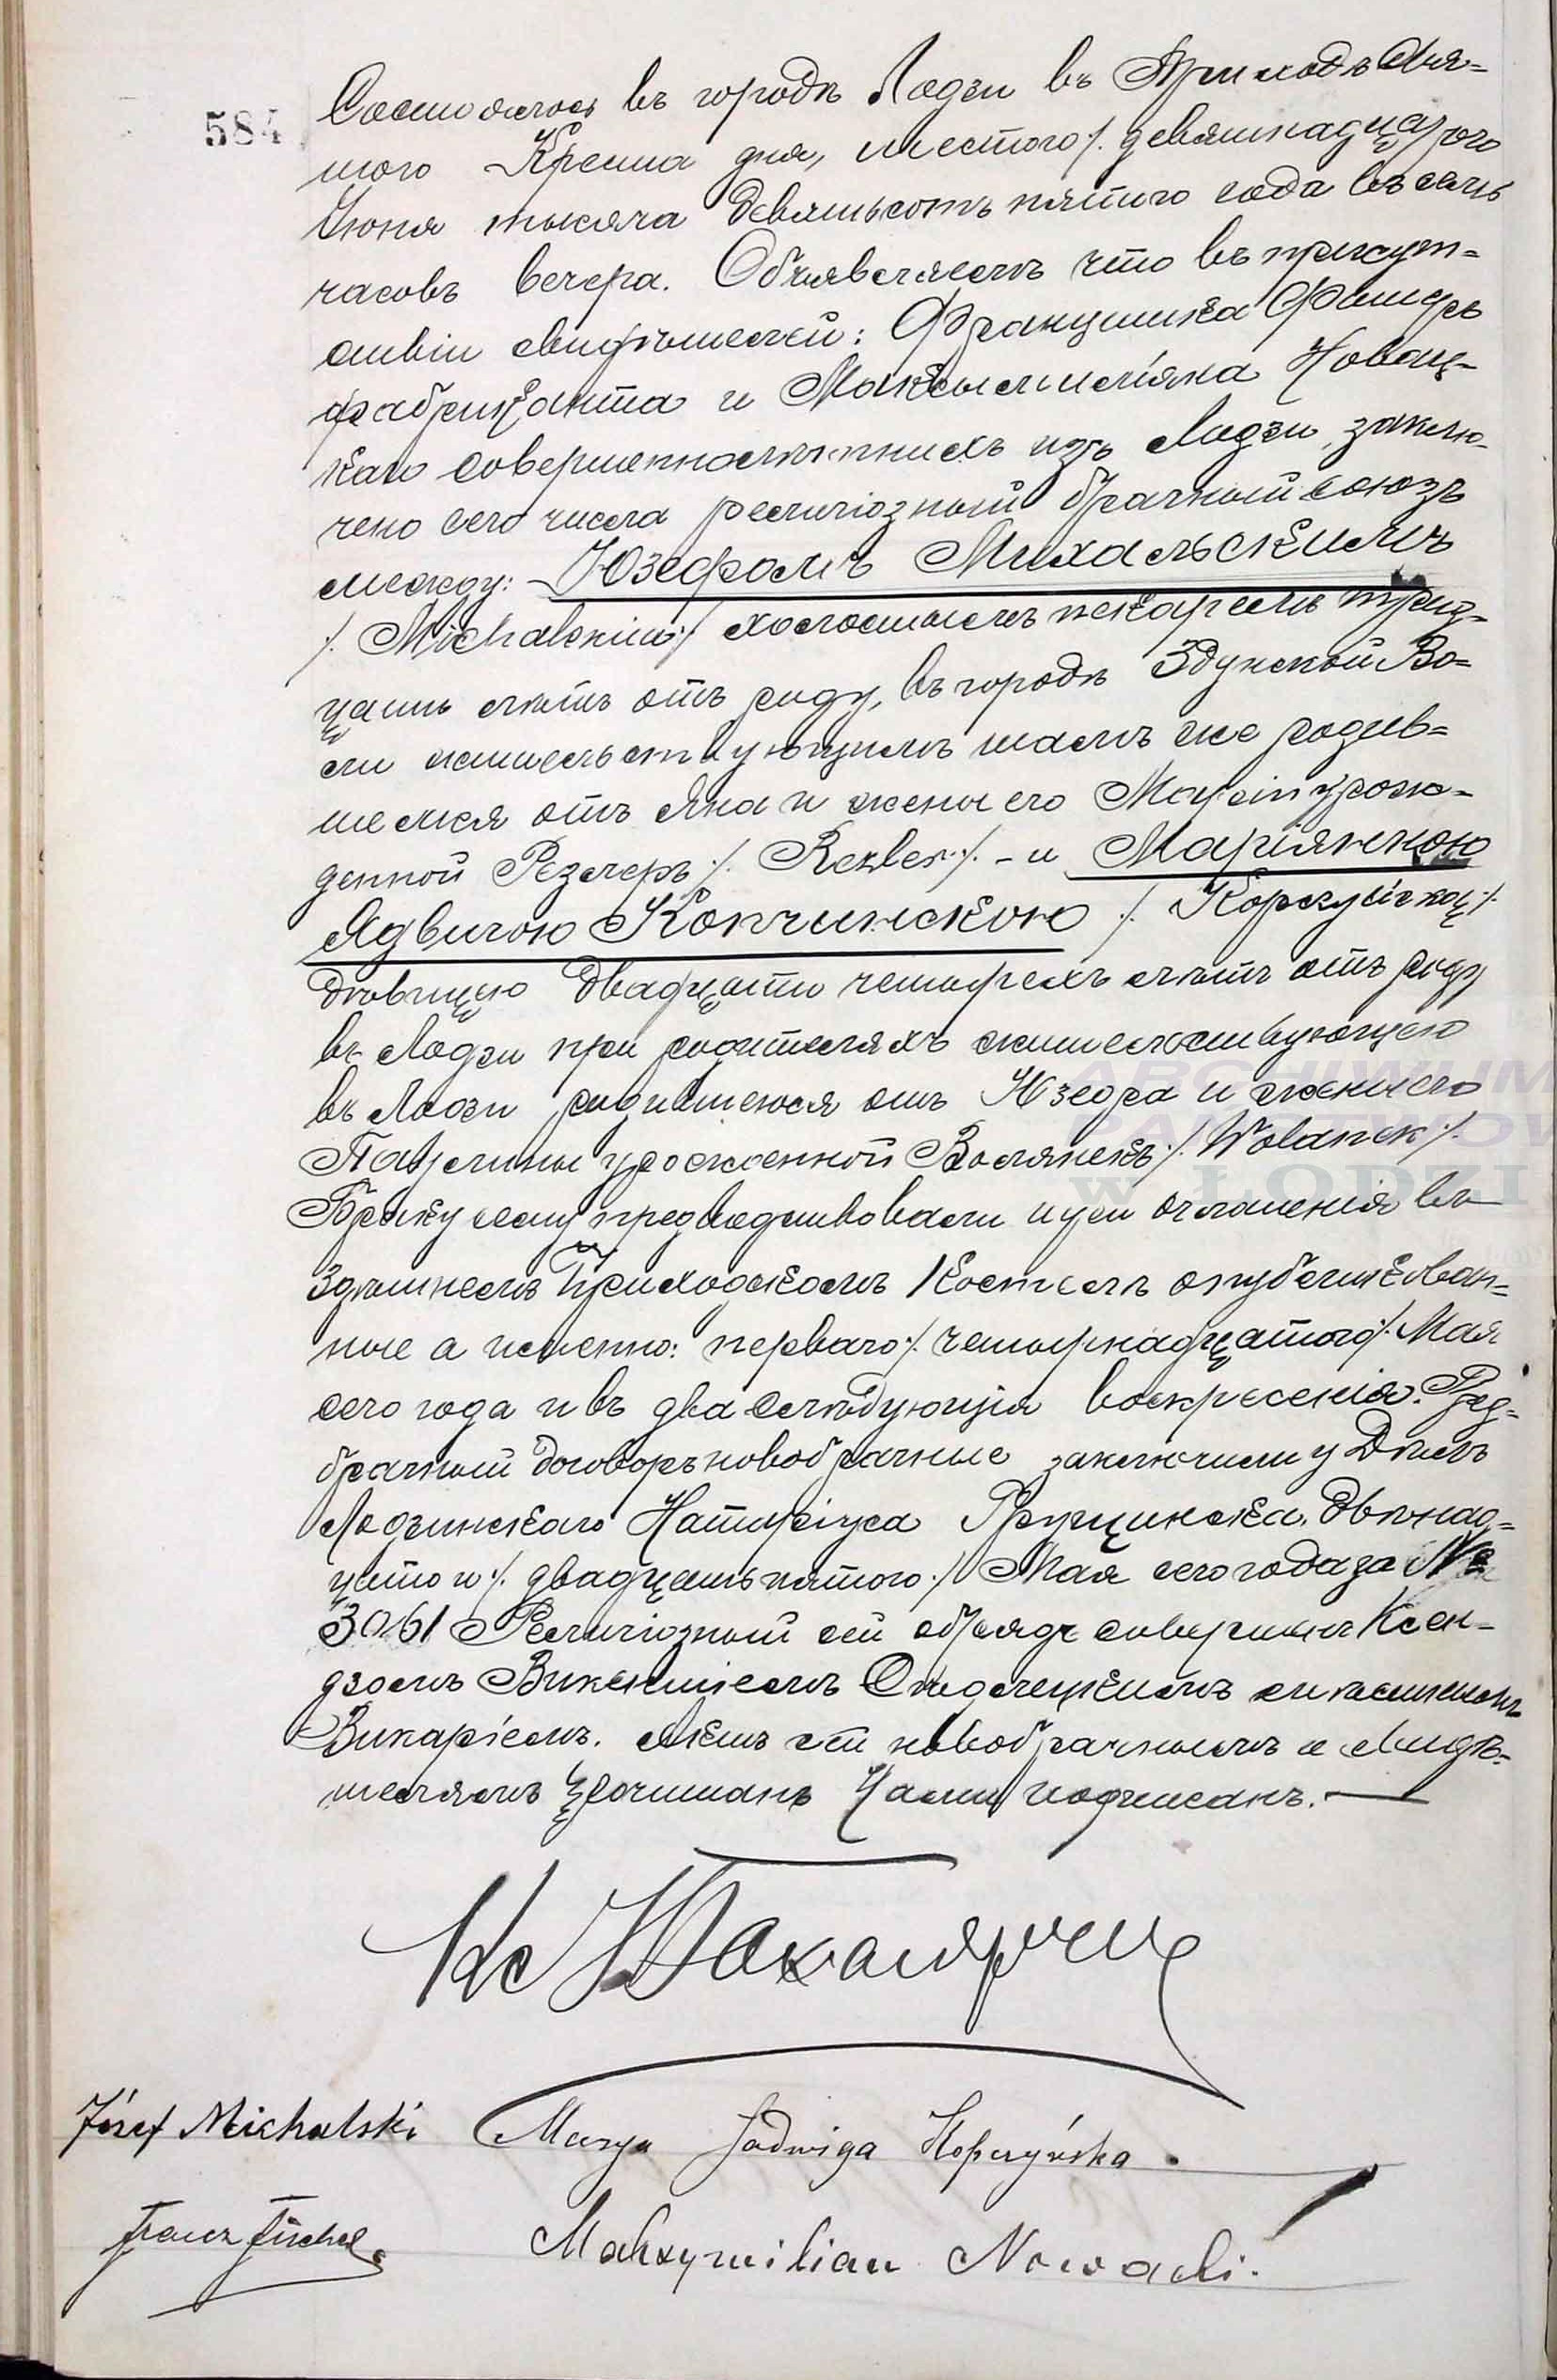 584
Состоялось въ городѣ Лодзи въ Приходѣ Свя-
таго Креста дня, шестого /: девятнадцатого
Іюня тысяча девятьсотъ пятого года въ семь
часовъ вечера. Объявляемъ что въ присут-
ствіи свидѣтелей: Францишка Фишеръ
фабриканта и Максымиліяна Новац-
каго совершеннолѣтнихъ изъ Лодзи, заклю-
чено сего числа религіозный брачный союзъ
между: Юзефомъ Михальскимъ
/: Michalskim :/ холостымъ пекаремъ трид-
цать лѣтъ отъ роду, въ городѣ Здунской Во-
ли жительствующимъ тамъ же родив-
шемся отъ Яна и жены его Маріи урож-
денной Резлеръ /: Rezler :/ - и Маріянною
Ядвигою Копчинскою /: Kopczyńską :/
дѣвицею двадцати четырехъ лѣтъ отъ роду
въ Лодзи при родителяхъ жительствующею
въ Лодзи родившеюся отъ Юзефа и жены его
Паулины урожденной Волянекъ /: Wolanek :/.
Браку сему предшедствовали три оглашенія въ
здѣшнемъ Приходскомъ Костелѣ опубликован-
ные а именно: перваго /: четырнадцатого :/ Мая
сего года и въ два слѣдующія воскресенія. Пред-
брачный договоръ новобрачные заключили у
Лодзинскаго Натаріуса Грущинска двѣнад-
цатого /: двадцать пятого :/ Мая сего года за №
3061 Религіозный сей обрядъ совершенъ Ксен-
дзомъ Викентіемъ мѣстнымъ
Викаріемъ. Актъ сей новобрачнымъ и Свидѣ-
телямъ прочитанъ Нами подписанъ.
Кс
Józef Michalski Marya Jadwiga Kopczyńska.
Franz Fischer Maksymilian Nowacki.
ARCHIWUM
PAŃSTWOW
W ŁODZI